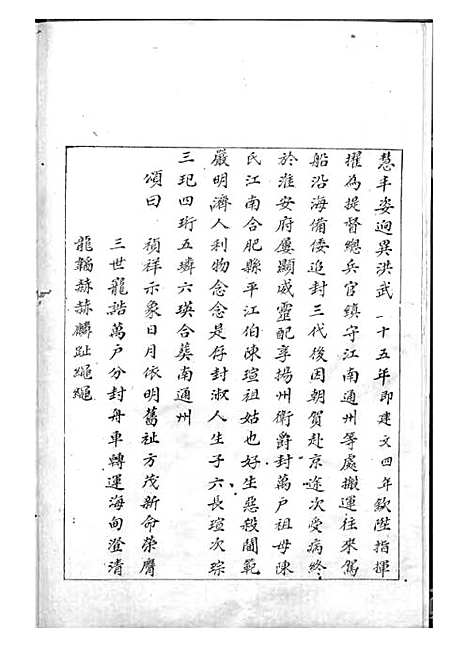 慧丰姿迥異洪武一十五年即建文四年欽陞指揮
擢為提督總兵官鎮守江南通州等處搬運往來駕
船沿海備倭追封三代後因朝賀赴京途次受病終
於淮安府屢顯威靈配享揚州衛爵封萬戶祖母陳
氏江南合肥縣平江伯陳瑄祖姑也好生惡殺閫範
嚴明濟人利物念念是存封淑人生子六長瑄次琮
三玘四珩五璘六瑛合葬南通州
頌曰　禎祥示象日月依明舊祉方茂新命榮膺
三世寵誥萬戶分封舟車轉運海甸澄清
龍韜赫赫麟趾繩繩